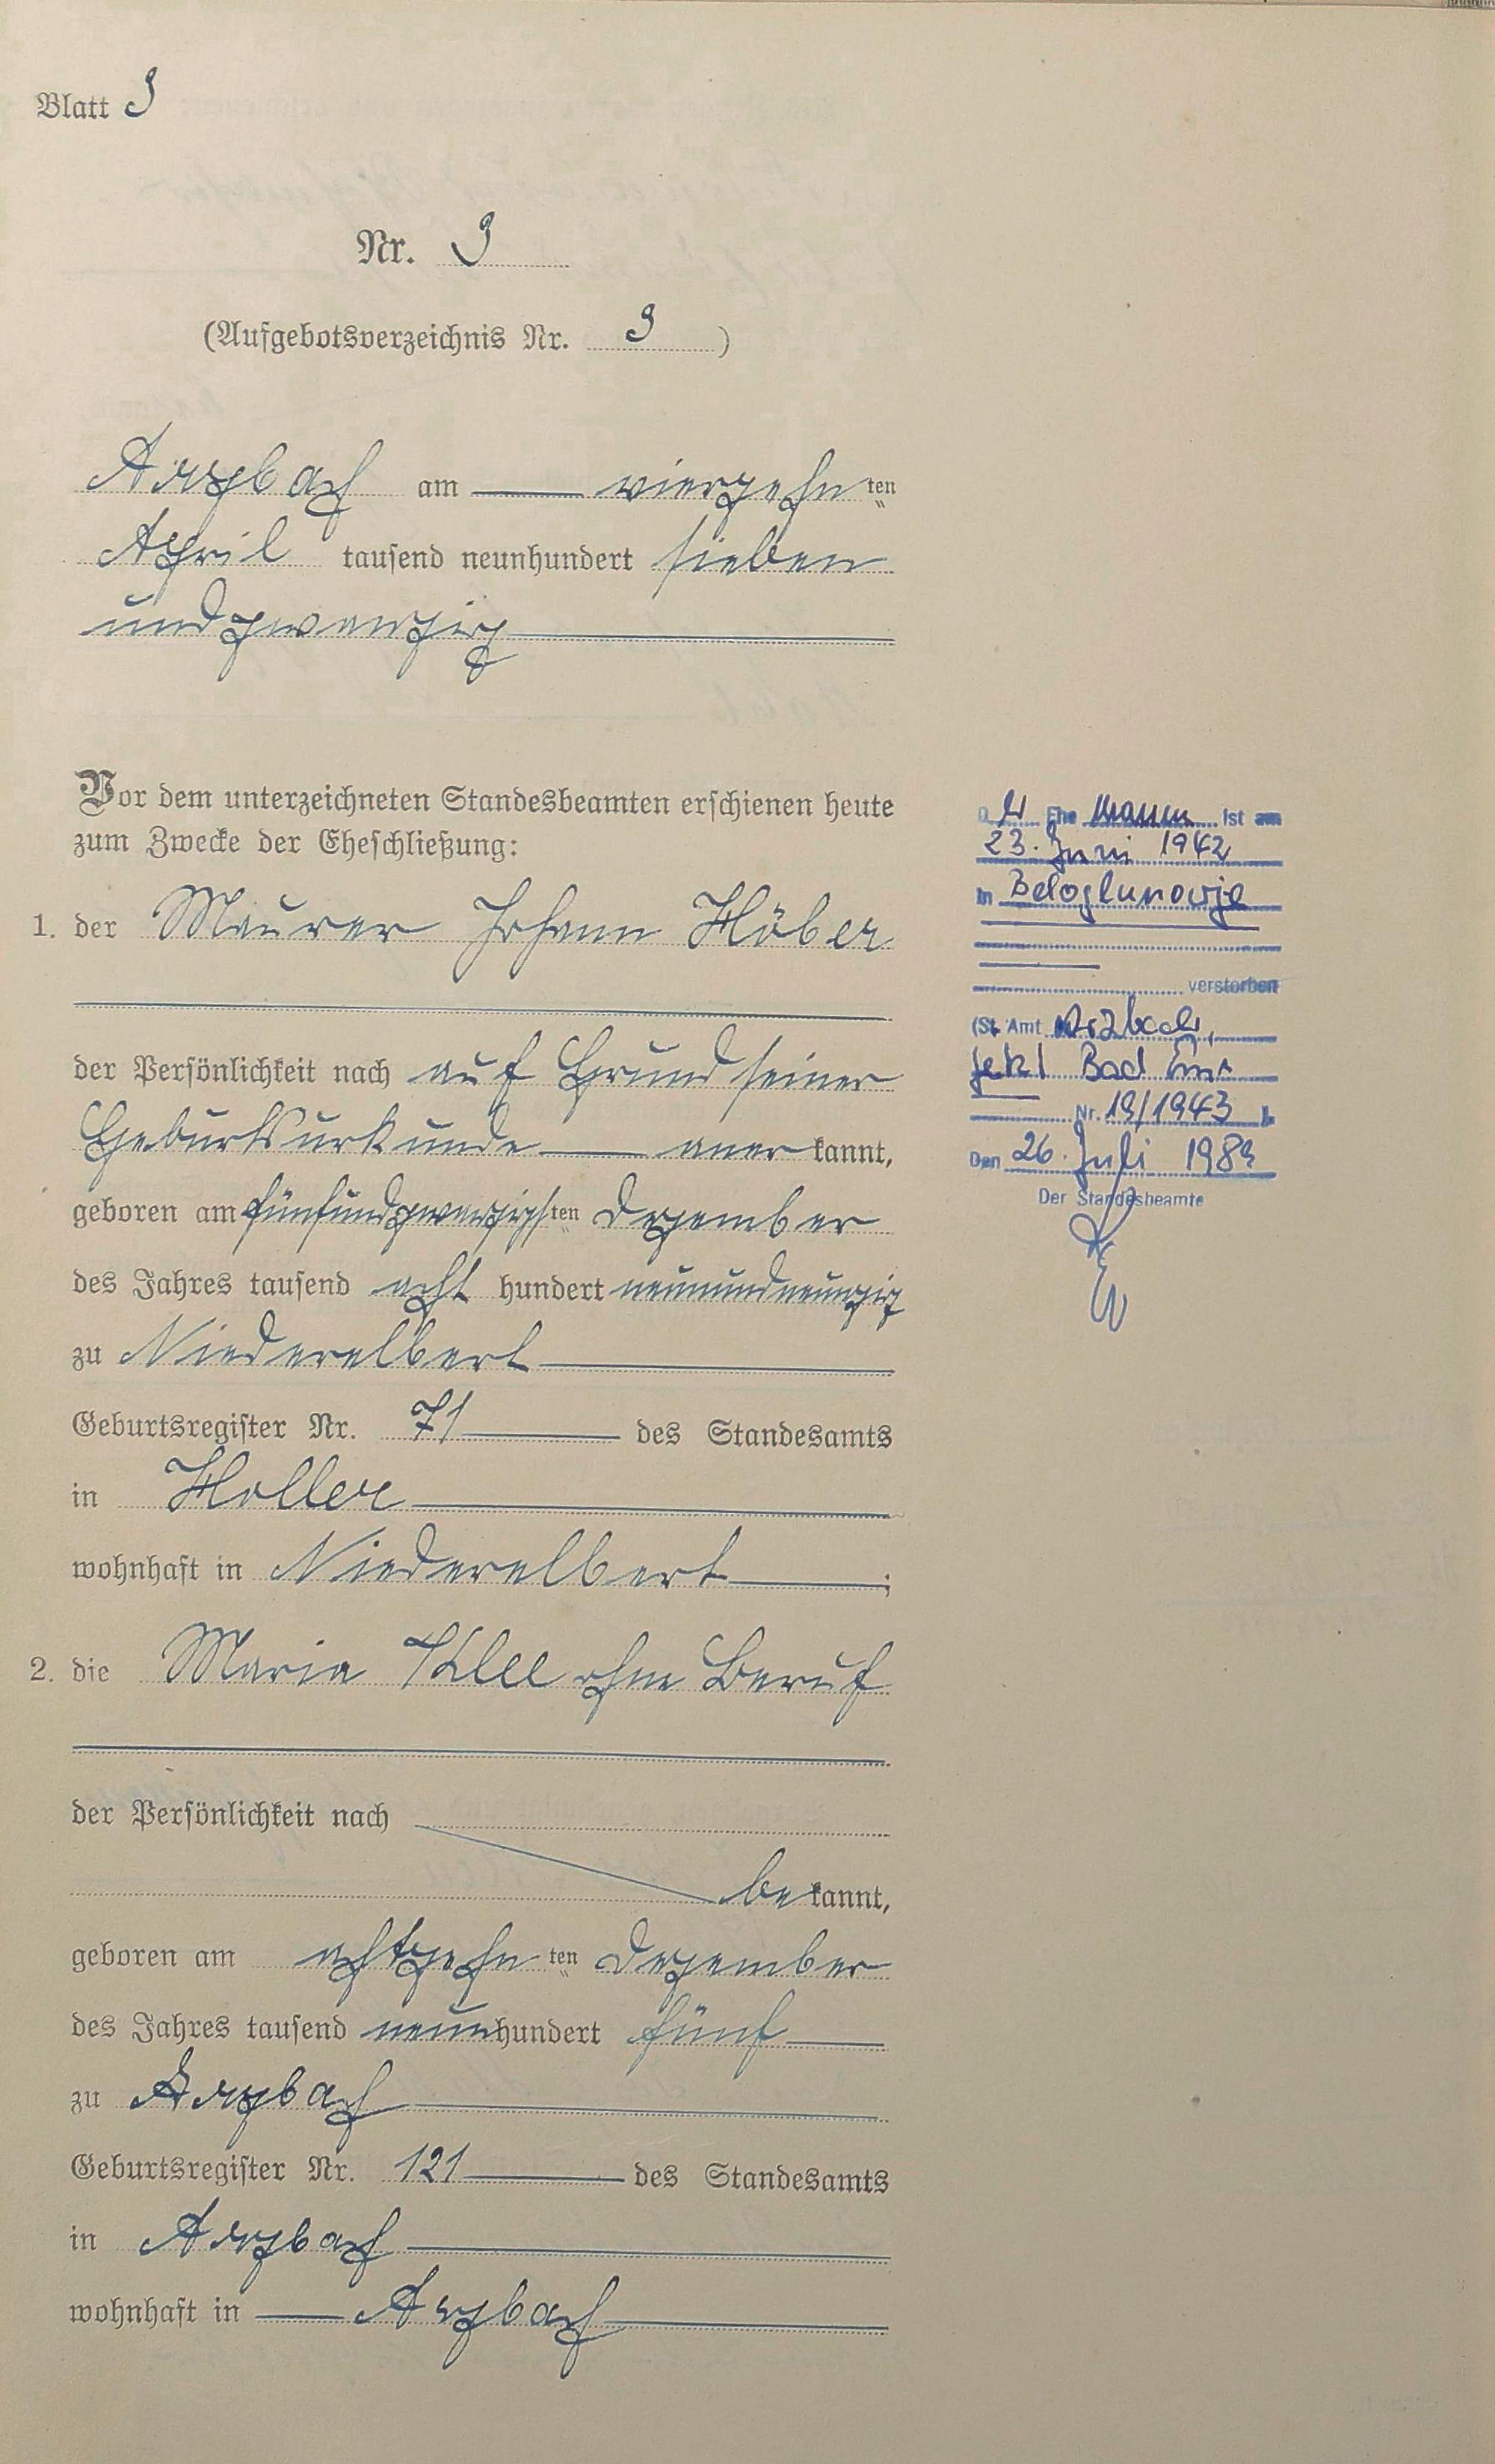 Blatt 3
Nr. 3
(Aufgebotsverzeichnis Nr. 3 )
Arzbach am vierzehn ten
April tausend neunhundert sieben
undzwanzig
Vor dem unterzeichneten Standesbeamten erschienen heute
zum Zwecke der Eheschließung:
1. der Maurer Johann Höber
der Persönlichkeit nach auf Grund seiner
Geburtsurkunde anerkannt,
geboren am fünfundzwanzigsten Dezember
des Jahres tausend acht hundert neunundneunzig
zu Niederelbert
Geburtsregister Nr. 71 des Standesamts
in Holler
wohnhaft in Niederelbert ;
2. die Maria Klee ohne Beruf
der Persönlichkeit nach
bekannt,
geboren am achtzehn ten Dezember
des Jahres tausend neunhundert fünf
zu Arzbach
Geburtsregister Nr. 121 des Standesamts
in Arzbach
wohnhaft in Arzbach
Der Ehemann ist am
23. Juni 1942
in Beloglunowje
verstorben
(St. Amt Arzbach,
jetzt Bad Ems
Nr. 19/1943
Den 26. Juli 1989
Der Standesbeamte